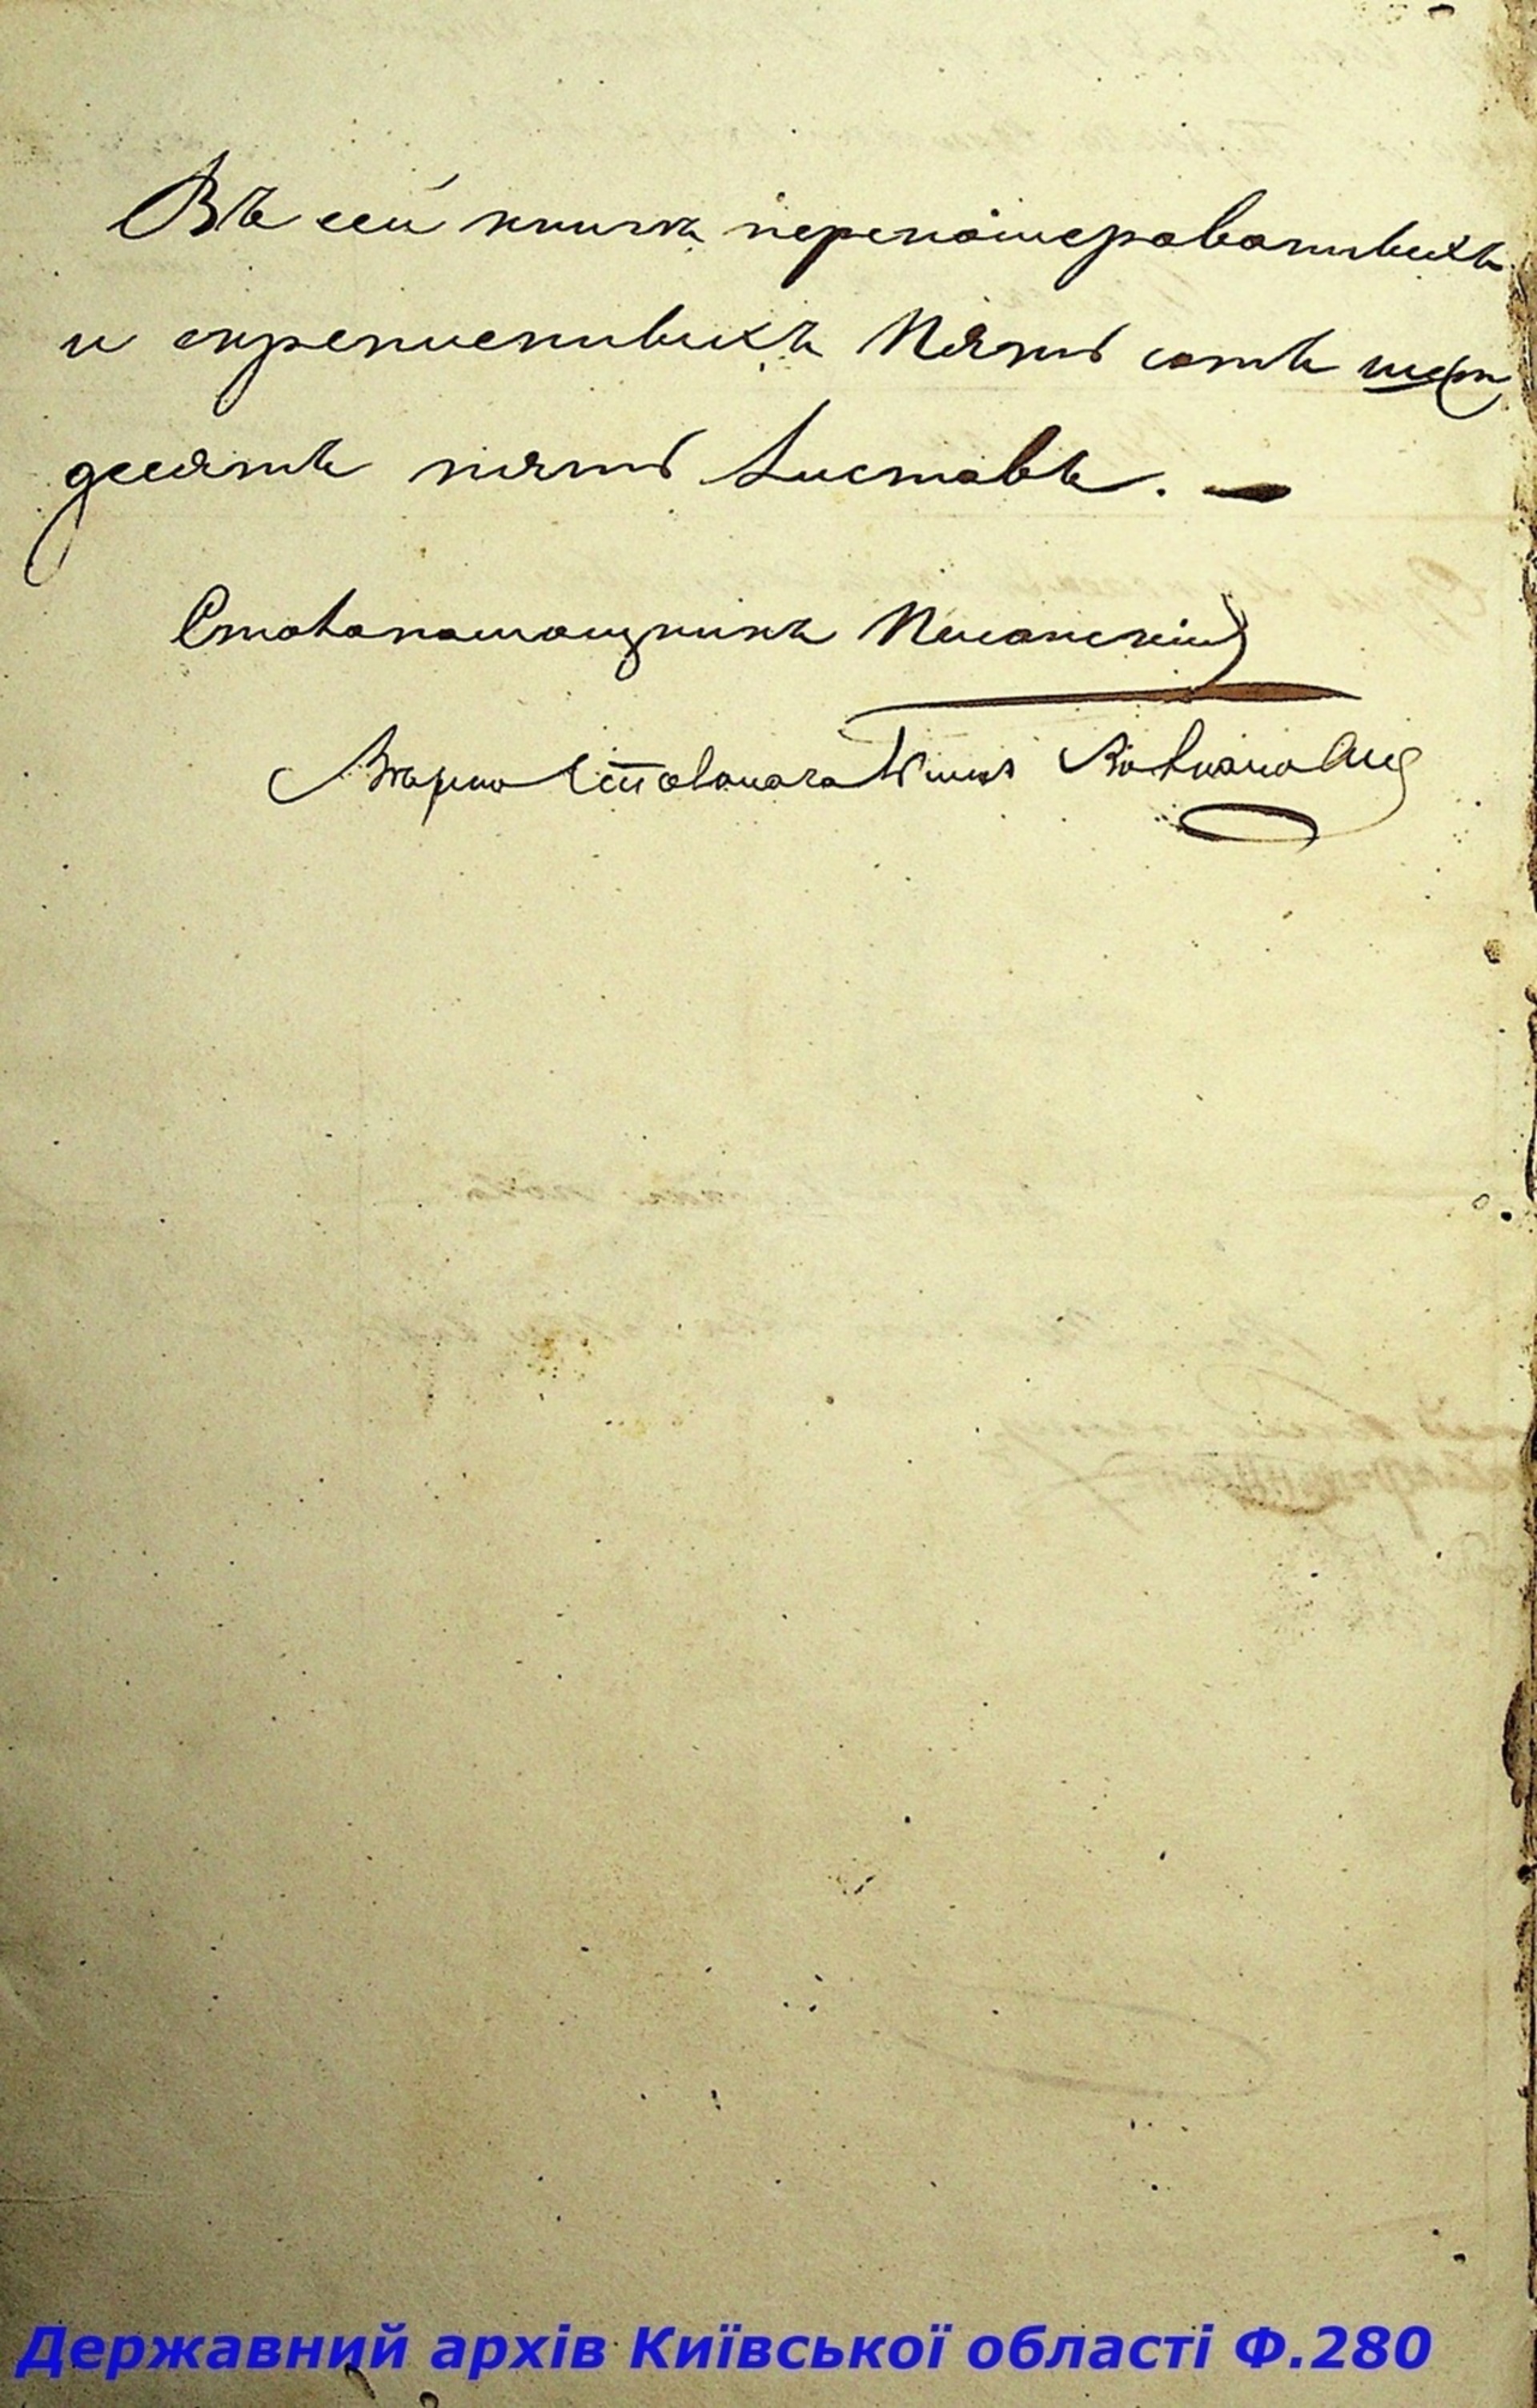 Въ сей книгѣ переномерованныхъ
и скрепленныхъ Пять сотъ шест
десятъ пять Листовъ. —
Столопомощникъ
Вѣрно Столоначальникъ
Державний архів Київської області Ф.280